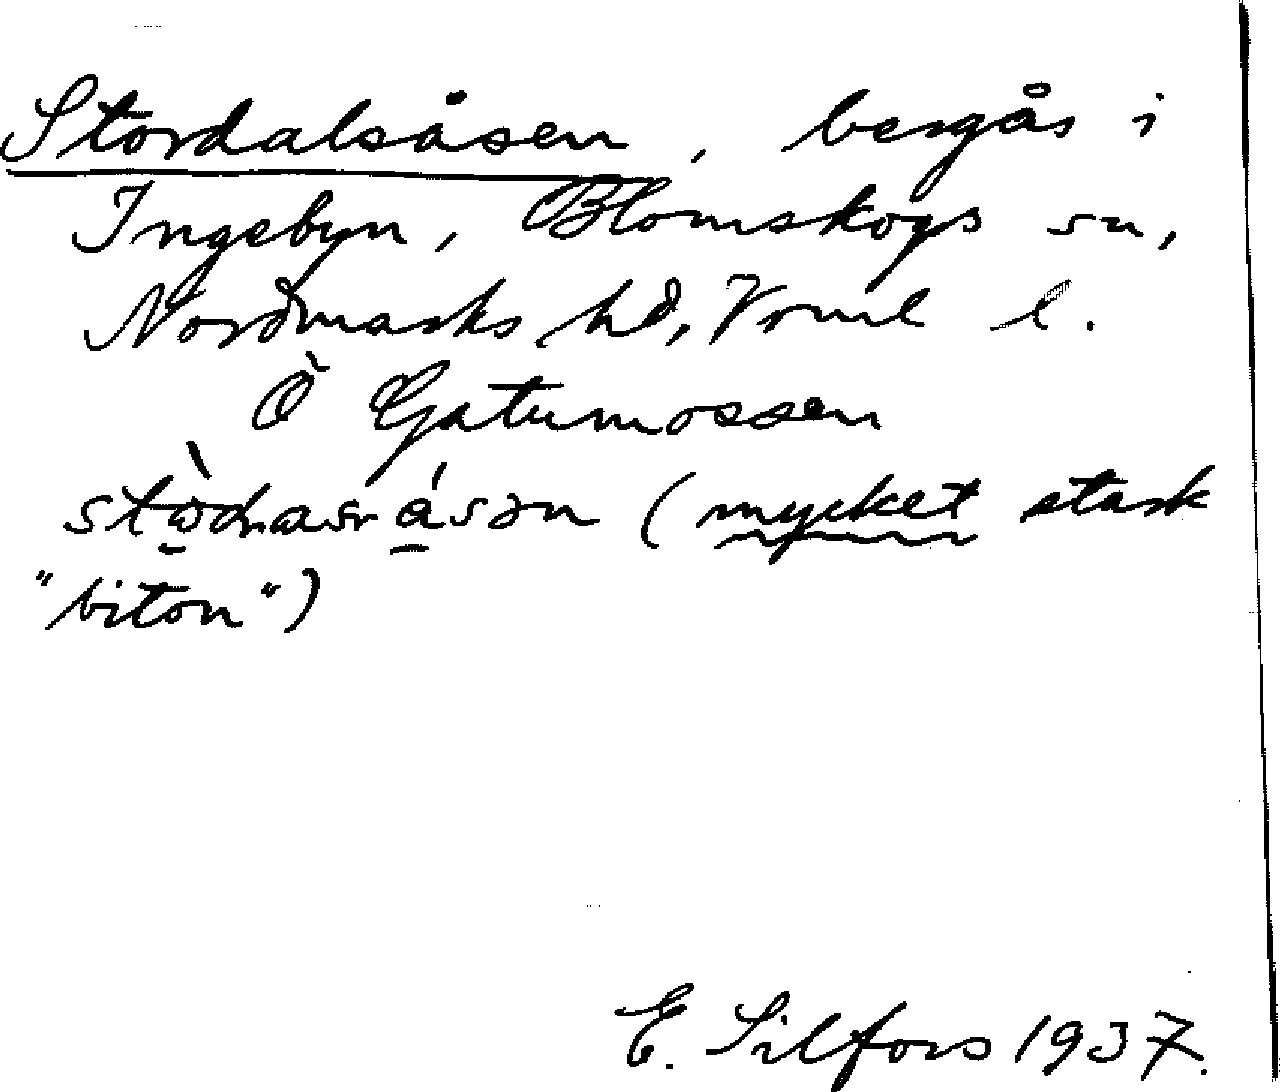 Stordalsåsen, bergås i
Ingebyn, Blomskogs sn,
Nordmarks hd, Vrml l.
Ö Gatumossen
(mycket stark
"biton")
E. Silfors 1937.